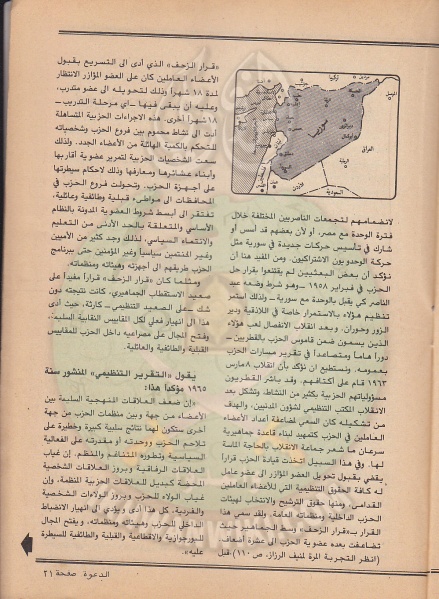 تركيا
العراق
الأردن
السعودية
لانضمامهم لتجمعات الناصريين المختلفة خلال
فترة الوحدة مع مصر، أو لأن بعضهم قد أسس أو
شارك في تأسيس حركات جديدة في سورية مثل
حركة الوحدويون الاشتراكيون. ومن المفيد هنا أن
نؤكد أن بعض البعثيين لم يقتنعوا بقرار حل
الحزب في فبراير ١٩٥٨ ـ وهو شرط وضعه عبد
الناصر كي يقبل بالوحدة مع سورية ـ ولذلك استمر
تنظيم هؤلاء باستمرار خاصة في اللاذقية ودير
الزور وحوران. وبعد انقلاب الانفصال لعب هؤلاء
الذين يسمون ضمن قاموس الحزب بالقطريين ـ
دوراً هاماً ومتصاعداً في تقرير مسارات الحزب
بعمومه. ونستطيع أن نؤكد بأن انقلاب ٨ مارس
١٩٦٣ قام على أكتافهم. وقد باشر القطريون
مسؤولياتهم الحزبية بكثير من النشاط، وتشكل بعد
الانقلاب المكتب التنظيمي لشؤون المدنيين، والهدف
من تشكيله كان السعي لمضاعفة أعداد الأعضاء
العاملين في الحزب كتمهيد لبناء قاعدة جماهيرية
سرعان ما شعر جماعة الانقلاب بالحاجة الماسة
لها. وفي هذا السبيل اتخذت قيادة الحزب قراراً
يقضي بقبول تحويل العضو المؤازر الى عضو عامل
له كافة الحقوق التنظيمية التي للأعضاء العاملين
القدامى، ومنها حقوق الترشيح والانتخاب لهيئات
الحزب الداخلية ومنظماته العامة. ولقد سمي هذا
القرار بـ«قرار الزحف» وسط الجماهير حيث
تضاعفت بعده عضوية الحزب الى عشرة أضعاف.
(انظر التجربة المرة لمنيف الرزاز، ص ١١٠) قبل
«قرار الزحف» الذي أدى الى التسريع بقبول
الأعضاء العاملين كان على العضو المؤازر الانتظار
لمدة ١٨ شهراً وذلك لتحويله الى عضو متدرب،
وعليه أن يبقى فيها ـ أي مرحلة التدريب ـ
١٨ شهراً أخرى. هذه الاجراءات الحزبية المتساهلة
أدت الى نشاط محموم بين فروع الحزب وشخصياته
للتحكم بالكمية الهائلة من الأعضاء الجدد. ولذلك
سعت الشخصيات الحزبية لتمرير عضوية أقاربها
وأبناء عشائرها ومعارفها وذلك لاحكام سيطرتها
على أجهزة الحزب. وتحولت فروع الحزب في
المحافظات الى مواطىء قبلية وطائفية وعائلية،
تفتقر الى أبسط شروط العضوية المدونة بالنظام
الأساسي والمتعلقة بالحد الأدنى من التعليم
والانتماء السياسي. لذلك وجد كثير من الأميين
وغير المنتمين سياسياً وغير المؤمنين حتى ببرنامج
الحزب طريقهم الى أجهزته وهيئاته ومنظماته.
ومثلما كان «قرار الزحف» قراراً مفيداً على
صعيد الاستقطاب الجماهيري، كانت نتيجته دون
شك ـ على الصعيد التنظيمي ـ كارثة، حيث أدى
هذا الى انهيار فعلي لكل المقاييس النقابية السليمة،
وفتح المجال على مصراعيه داخل الحزب للمقاييس
القبلية والطائفية والعائلية.
يقول «التقرير التنظيمي» المنشور سنة
١٩٦٥ مؤكداً هذا:
«إن ضعف العلاقات المنهجية السليمة بين
الأعضاء من جهة وبين منظمات الحزب من جهة
أخرى ستكون لهما نتائج سلبية كبيرة وخطيرة على
تلاحم الحزب ووحدته أو مقدرته على الفعالية
السياسية وتطوره المتناغم والمنظم. إن غياب
العلاقات الرفاقية وبروز العلاقات الشخصية
المحضة كبديل للعلاقات الحزبية المنظمة، وإن
غياب الولاء للحزب وبروز الولاءات الشخصية
والفردية، كل هذا أدى ويؤدي الى انهيار الانضباط
الداخلي للحزب وهيئاته ومنظماته، ويفتح المجال
للبورجوازية والاقطاعية والقبلية والطائفية للسيطرة
عليه».
الدعوة صفحة ٢١